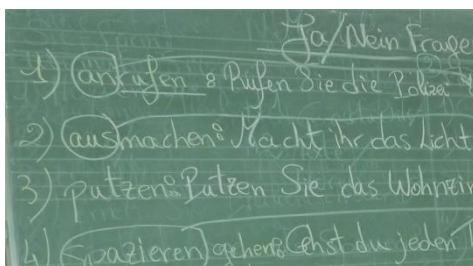 Ja/Nein Frage
1) anrufen : Rufen Sie die Polizei
2) ausmachen: Macht ihr das Licht
3) putzen: Putzen Sie das
4) spazieren gehen: Gehst du jeden